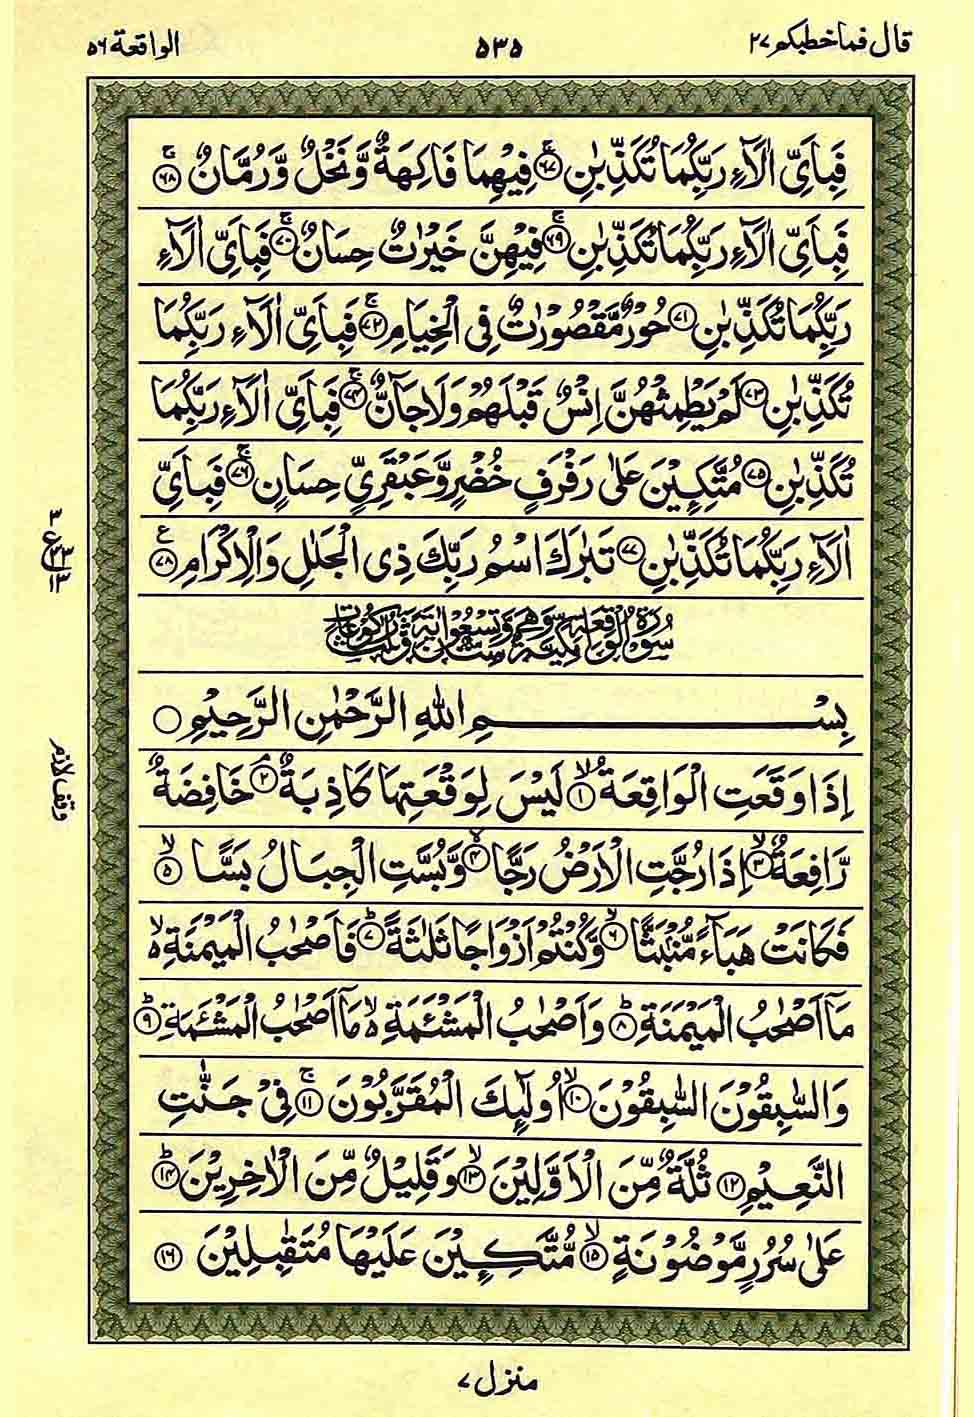 قال فما خطبكم ٢٧
٥٣٥
الواقعة ٥٦
فَبِاَىِّ اٰلَآءِ رَبِّكُمَا تُكَذِّبٰنِ ﴿٦٧﴾ۚ فِيْهِمَا فَاكِهَةٌ وَّنَخْلٌ وَّرُمَّانٌ ﴿٦٨﴾ۚ
فَبِاَىِّ اٰلَآءِ رَبِّكُمَا تُكَذِّبٰنِ ﴿٦٩﴾ۚ فِيْهِنَّ خَيْرٰتٌ حِسَانٌ ﴿٧٠﴾ۚ فَبِاَىِّ اٰلَآءِ
رَبِّكُمَا تُكَذِّبٰنِ ﴿٧١﴾ حُوْرٌ مَّقْصُوْرٰتٌ فِى الْخِيَامِ ﴿٧٢﴾ۚ فَبِاَىِّ اٰلَآءِ رَبِّكُمَا
تُكَذِّبٰنِ ﴿٧٣﴾ لَمْ يَطْمِثْهُنَّ اِنْسٌ قَبْلَهُمْ وَلَا جَآنٌّ ﴿٧٤﴾ۚ فَبِاَىِّ اٰلَآءِ رَبِّكُمَا
تُكَذِّبٰنِ ﴿٧٥﴾ مُتَّكِـِٕيْنَ عَلٰى رَفْرَفٍ خُضْرٍ وَّعَبْقَرِىٍّ حِسَانٍ ﴿٧٦﴾ۚ فَبِاَىِّ
اٰلَآءِ رَبِّكُمَا تُكَذِّبٰنِ ﴿٧٧﴾ تَبٰرَكَ اسْمُ رَبِّكَ ذِى الْجَلٰلِ وَالْاِكْرَامِ ﴿٧٨﴾ ع
سُوْرَةُ الْوَاقِعَةِ مَكِّيَّةٌ وَّهِىَ سِتٌّ وَّتِسْعُوْنَ اٰيَةً وَّثَلٰثُ رُكُوْعَاتٍ
بِسْمِ اللّٰهِ الرَّحْمٰنِ الرَّحِيْمِ
اِذَا وَقَعَتِ الْوَاقِعَةُ ﴿١﴾ۙ لَيْسَ لِوَقْعَتِهَا كَاذِبَةٌ ﴿٢﴾ۘ خَافِضَةٌ
رَّافِعَةٌ ﴿٣﴾ۙ اِذَا رُجَّتِ الْاَرْضُ رَجًّا ﴿٤﴾ۙ وَّبُسَّتِ الْجِبَالُ بَسًّا ﴿٥﴾ۙ
فَكَانَتْ هَبَآءً مُّنْۢبَثًّا ﴿٦﴾ۙ وَّكُنْتُمْ اَزْوَاجًا ثَلٰثَةً ﴿٧﴾ؕ فَاَصْحٰبُ الْمَيْمَنَةِ ۙ
مَاۤ اَصْحٰبُ الْمَيْمَنَةِ ﴿٨﴾ؕ وَاَصْحٰبُ الْمَشْـَٔمَةِ ۙ مَاۤ اَصْحٰبُ الْمَشْـَٔمَةِ ﴿٩﴾ؕ
وَالسّٰبِقُوْنَ السّٰبِقُوْنَ ﴿١٠﴾ۙ اُولٰٓئِكَ الْمُقَرَّبُوْنَ ﴿١١﴾ۚ فِىْ جَنّٰتِ
النَّعِيْمِ ﴿١٢﴾ ثُلَّةٌ مِّنَ الْاَوَّلِيْنَ ﴿١٣﴾ۙ وَقَلِيْلٌ مِّنَ الْاٰخِرِيْنَ ﴿١٤﴾ؕ
عَلٰى سُرُرٍ مَّوْضُوْنَةٍ ﴿١٥﴾ۙ مُّتَّكِـِٕيْنَ عَلَيْهَا مُتَقٰبِلِيْنَ ﴿١٦﴾
وقف لازم
منزل ٧